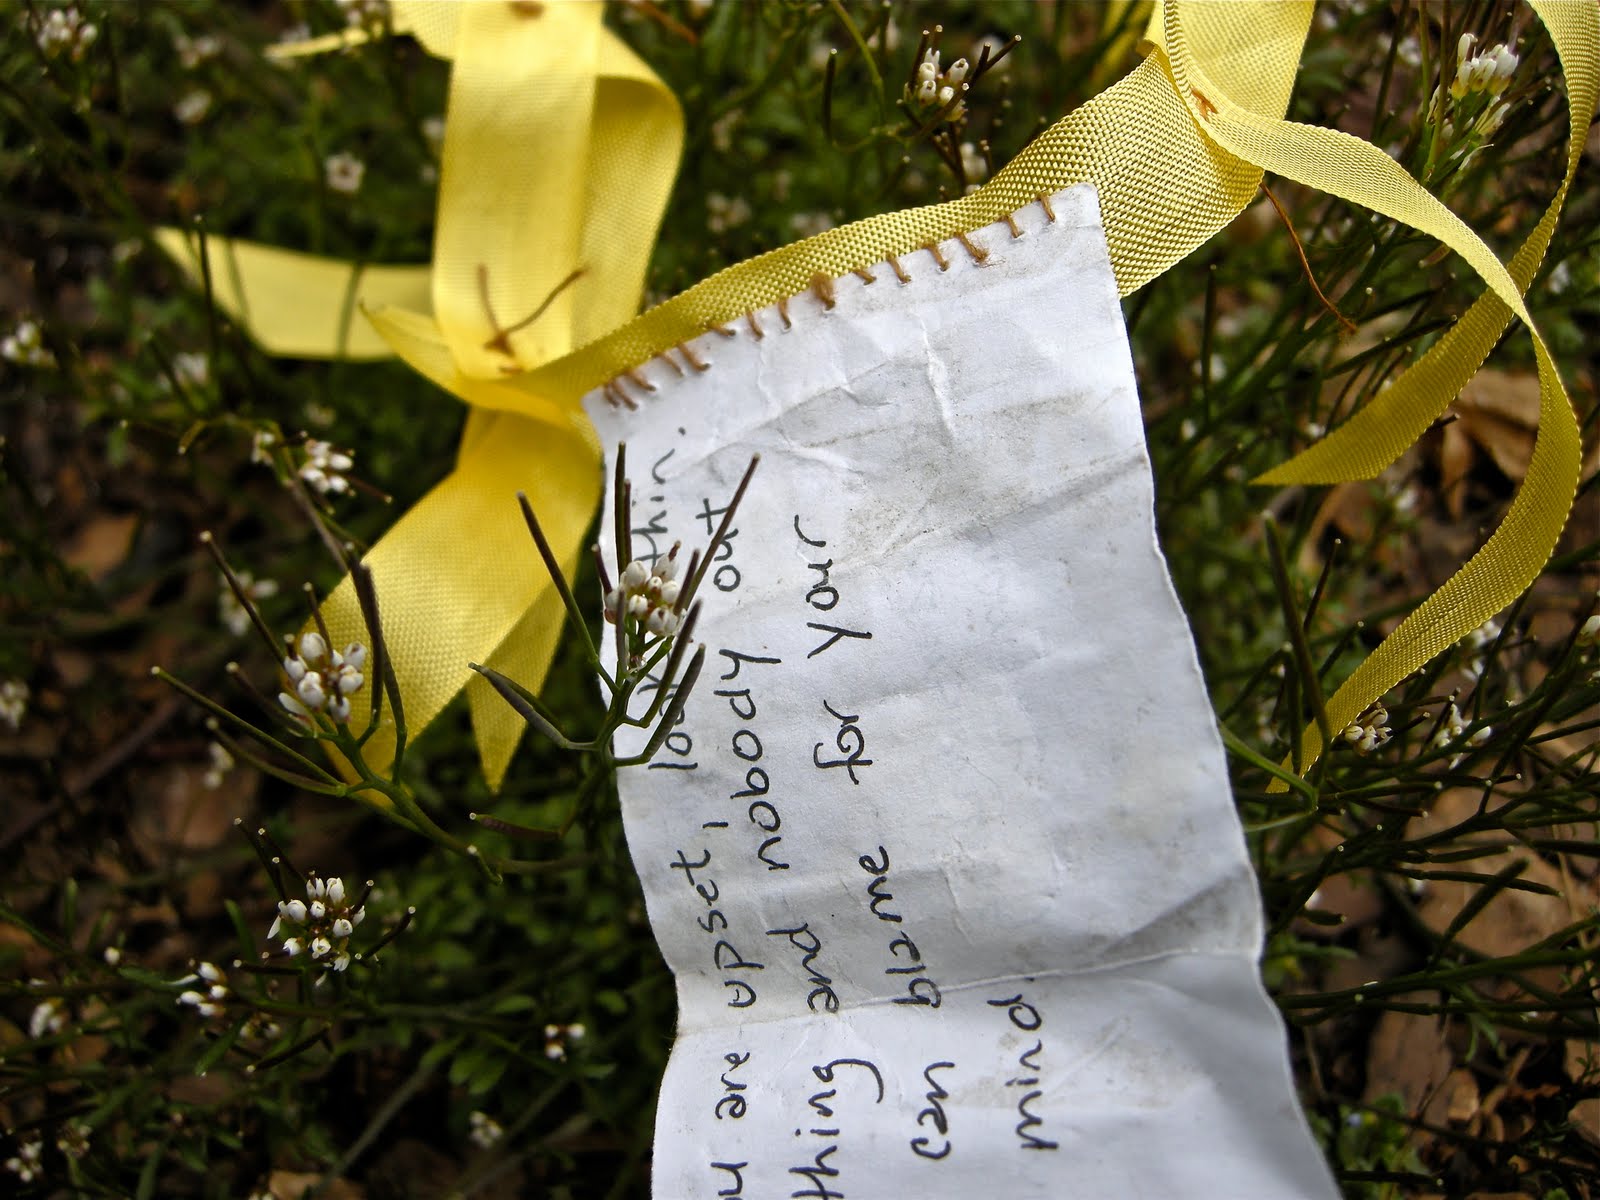 ou are upset, look within.
thing and nobody out
can blame for your
mind.